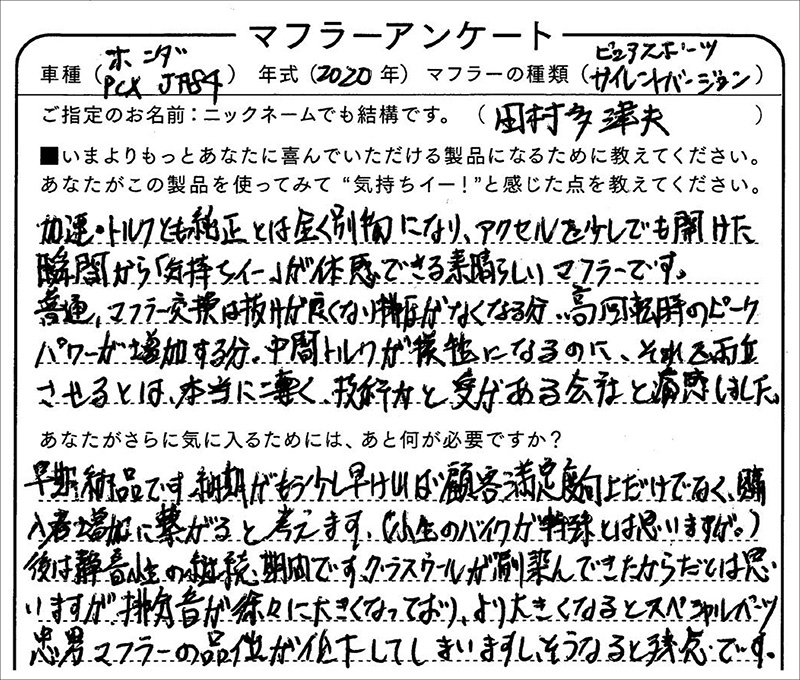 マフラーアンケート
車種（ホンダ PCX JF84） 年式（2020年） マフラーの種類（ピュアスポーツ サイレントバージョン）
ご指定のお名前：ニックネームでも結構です。（田村多津夫）
■いまよりもっとあなたに喜んでいただける製品になるために教えてください。
あなたがこの製品を使ってみて“気持ちイー！”と感じた点を教えてください。
加速・トルクとも純正とは全く別物になり、アクセルを少しでも開けた
瞬間から「気持ちイー」が体感できる素晴らしいマフラーです。
普通、マフラー交換は抜けが良くなり排圧がなくなる分、高回転時のピーク
パワーが増加する分、中間トルクが犠牲になるのに、それを両立
させるとは、本当に凄く、技術力と愛がある会社と痛感しました。
あなたがさらに気に入るためには、あと何が必要ですか？
早期納品です。納期がもう少し早ければ顧客満足度向上だけでなく、購
入者増加に繋がると考えます。（小生のバイクが特殊とは思いますが。）
後は静音性の継続期間です。グラスウールが馴染んできたからだとは思
いますが排気音が徐々に大きくなっており、より大きくなるとスペシャルパーツ
忠男マフラーの品位が低下してしまいますし、そうなると残念です。